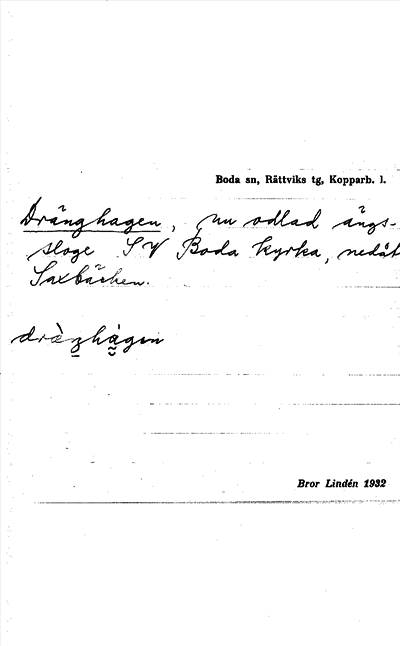 Boda sn, Rättviks tg, Kopparb. l.
Dränghagen, nu odlad ängs-
sloge SV Boda kyrka, nedåt
Saxbäcken.
Bror Lindén 1932